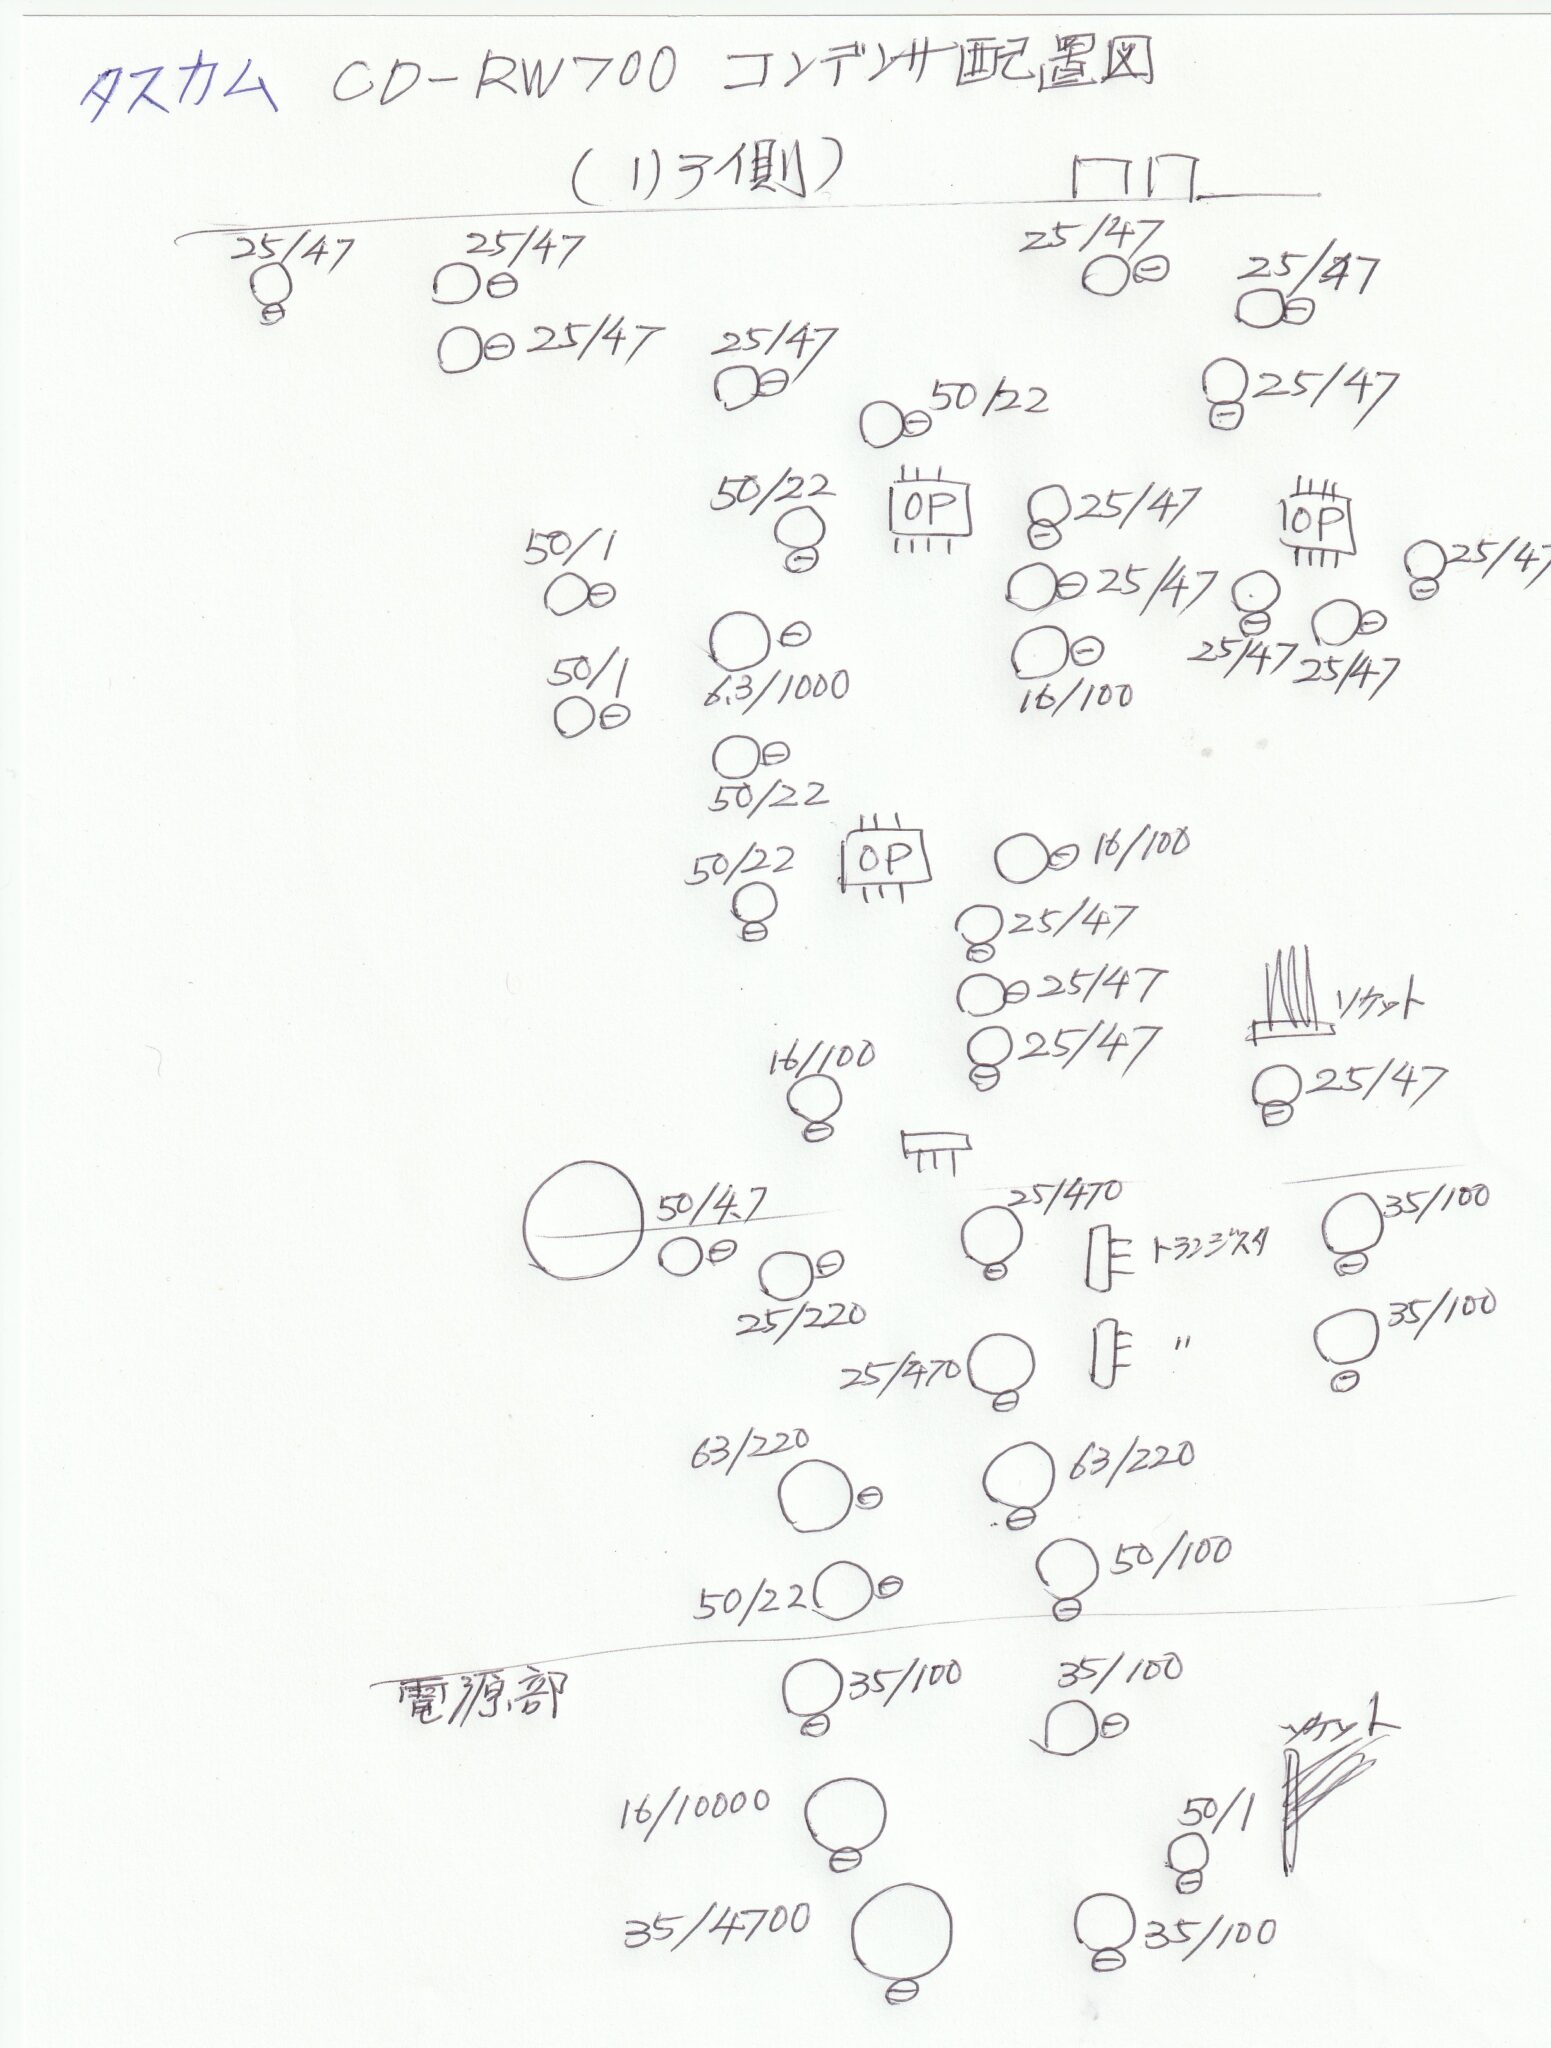 タスカム CD-RW700 コンデンサ配置図
(リヤ側)
25/47
25/47
25/47
25/47
25/47
25/47
50/22
25/47
50/22
OP
25/47
OP
25/47
50/1
25/47
25/47
25/47
50/1
6.3/1000
16/100
50/22
50/22
OP
16/100
25/47
25/47
ソケット
25/47
16/100
25/47
50/4.7
25/470
トランジスタ
35/100
25/220
25/470
〃
35/100
63/220
63/220
50/22
50/100
電源部
35/100
35/100
ソケット
16/10000
50/1
35/4700
35/100